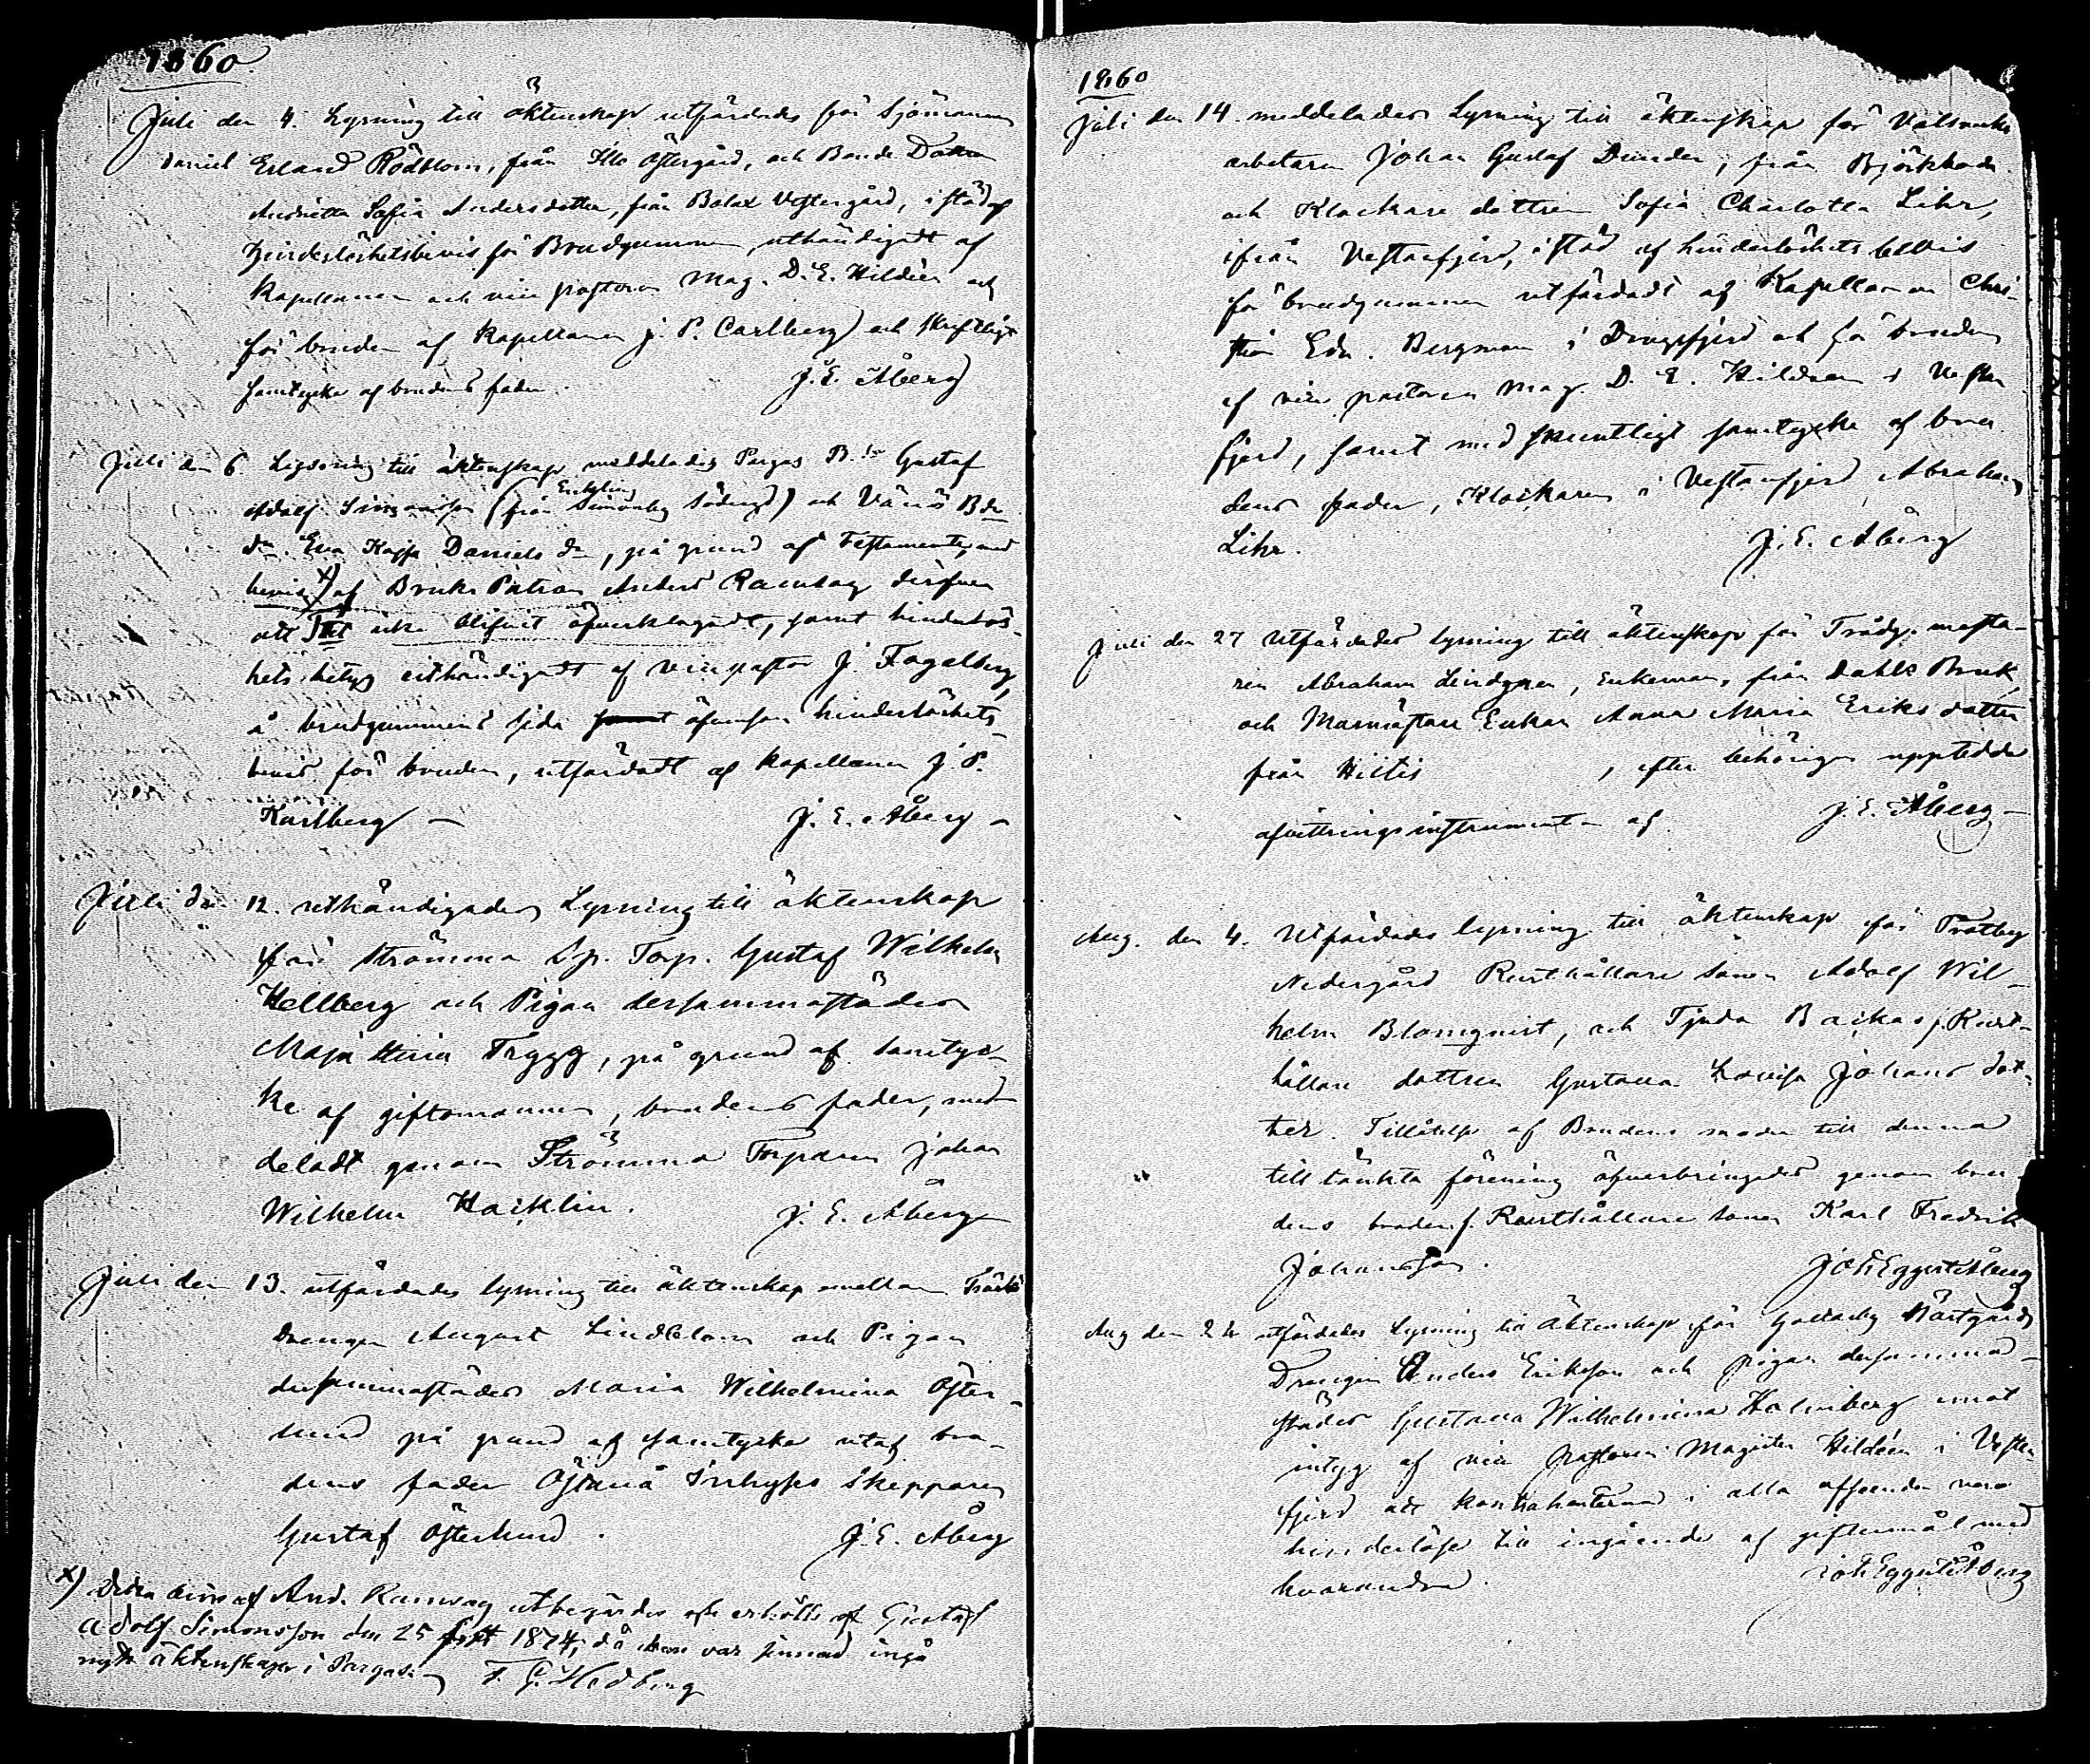 1860.
Juli den 4. Lysning till äktenskap utfärdades för Sjömannen
Daniel Erland Rödblom, från Illo Östergård, och Bonde Dottren
Andrietta Sofia Andersdotter, från Bolax Vestergård, i stöd af
hinderlöshetsbevis för Brudgummen, uthändigadt af
Kapellanen och vice pastoren Mag. D. E. Hildéen och
för bruden af Kapellanen J. P. Carlberg och skriftligt
samtycke af brudens fader.
J. E. Åberg
Juli den 6 Lysning till äktenskap meddelades Pargas B. Gustaf
Enkling
Adolf Simonsson (från Simonby Södergd) och Vänö Bde
dr. Eva Kajsa Daniels dr, på grund af Testamente, med
bevis x) af Bruks Patron Anders Ramsay deröfver
att det icke blifvit öfverklagadt, samt hinderlös-
hets betyg uthändigadt af vicepastor J. Fagelberg,
å brudgummens sida samt äfvensom hinderlöshets-
bevis för bruden, utfärdadt af kapellanen J. P.
Karlberg —
J. E. Åberg —
Juli den 12. uthändigades Lysning till äktenskap
för Strömma Sp. Torp. Gustaf Wilhelm
Hellberg och Pigan dersammastädes
Maja Stina Trygg, på grund af samtyc-
ke af giftomannen, brudens fader, med-
deladt genom Strömma Torparen Johan
Wilhelm Hacklin.
J. E. Åberg
Juli den 13. utfärdades lysning till äktenskap emellan Träskö
Drengen August Lindblom och Pigan
dersammastädes Maria Wilhelmina Öster-
lund på grund af samtycke utaf bru-
dens fader Östanå Inhyses Skepparen
Gustaf Österlund.
J. E. Åberg
x) Detta bevis af And. Ramsay utbegärdes och erhölls af Gustaf
Adolf Simonsson den 25 Sept 1874, då han var sinnad ingå
nytt äktenskap i Pargas.
F. G. Hedberg
1860
Juli den 14. meddelades Lysning till äktenskap för Valsverks
arbetaren Johan Gustaf Dunder, från Björkboda
och Klockare dottren Sofia Charlotta Lihr,
ifrån Vestanfjerd, i stöd af hinderlöshets bevis
för brudgummen utfärdadt af Kapellanen Chri-
stian Edv. Bergman i Dragsfjerd och för bruden
af vice pastoren Mag. D. E. Hildéen i Vestan
fjerd, samt med muntligt samtycke af bru-
dens fader, Klockaren i Vestanfjerd Abraham
Lihr.
J. E. Åberg
Juli den 27 Utfärdades lysning till äktenskap för Trädg. mästa-
ren Abraham Lindgren, Enkeman, från Dahls Bruk,
och Murmästare Enkan Anna Maria Eriks dotter
från Hitis , efter behörigen uppteddt
afvittringsinstrument af
J. E. Åberg —
Aug. den 4. Utfärdades lysning till äktenskap för Tråtby
Nedergård Rusthållare sonen Adolf Wil-
helm Blomqvist, och Tjuda Backas Rust-
hållare dottren Gustava Lovisa Johans dot-
ter. Tillåtelse af Brudens moder till denna
tilltänkta förening öfverbringades genom bru-
dens broder f. Rusthållare sonen Karl Fredrik
Johansson.
Joh Eggert Åberg
Aug den 24 utfärdades Lysning till Äktenskap för Galtarby Norrgårds
Drengen Anders Eriksson och pigan dersamma-
städes Gustava Wilhelmina Holmberg emot
intyg af vice pastoren Magister Hildéen i Vestan-
fjerd att kontrahenterna i alla afseenden voro
hinderlösa till ingående af giftermål med
hvarandra.
Joh Eggert Åberg